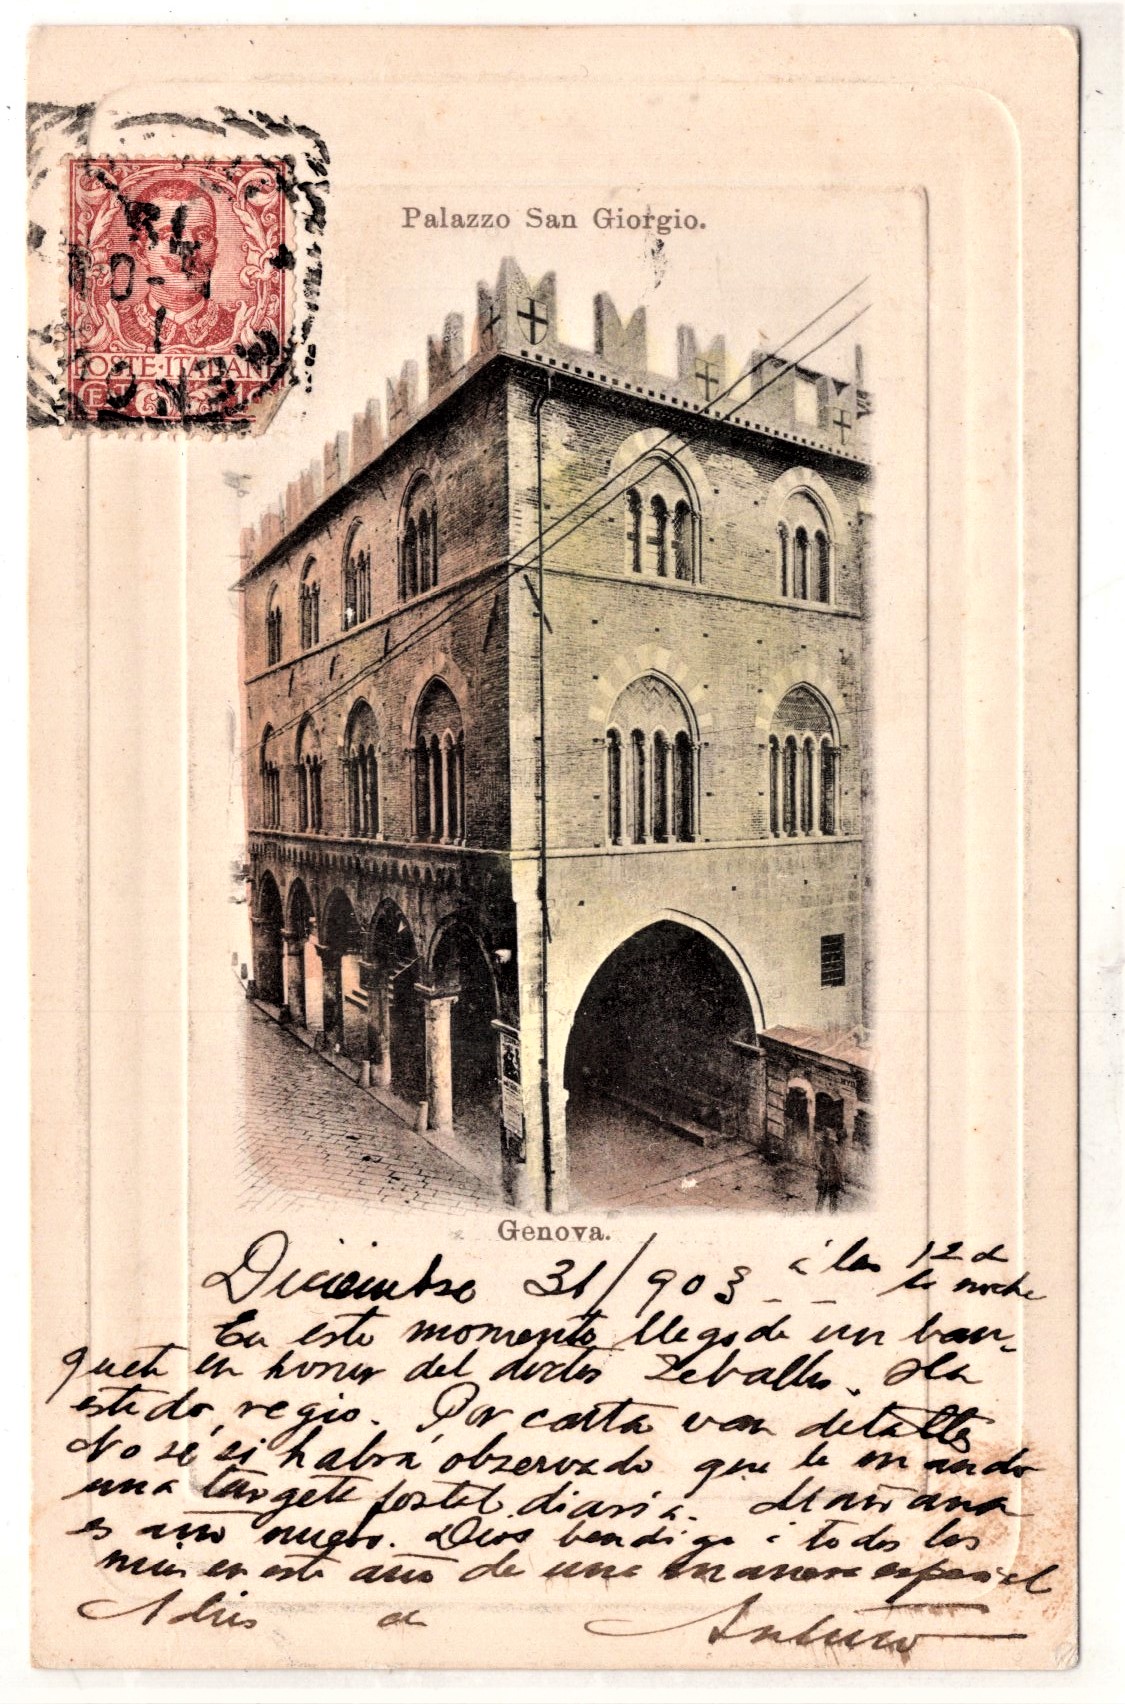 Palazzo San Giorgio.
POSTE·ITALIANE
Genova.
Diciembre 31/903 - - á las 12 de
la noche
En este momento llego de un ban-
quete en honor del doctor Zeballos. Ha
estado regio. Por carta van detalles
No sé si habrá observado que le mando
una targeta postal diaria. Mañana
es año nuevo. Dios bendiga á todos los
mios en este año de una manera especial
Adios de Arturo